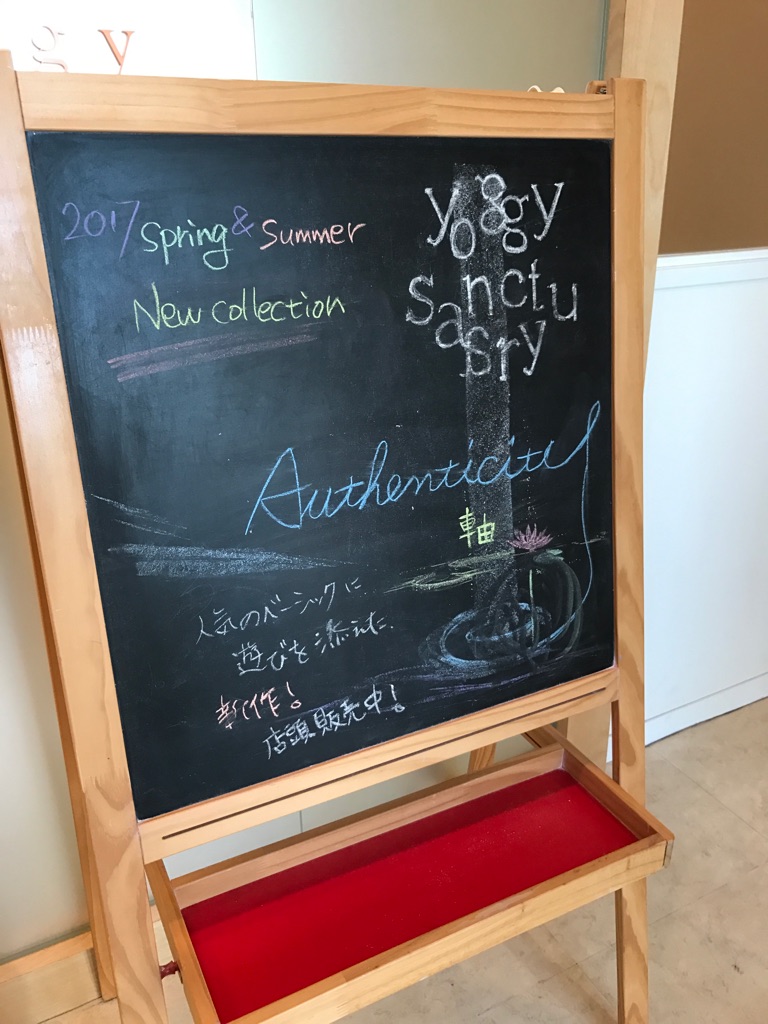 gy
2017 Spring & Summer
New collection
yoggy
sanctuasry
Authenticity
軸
人気のベーシックに
遊びを添えた
新作!
店頭販売中!